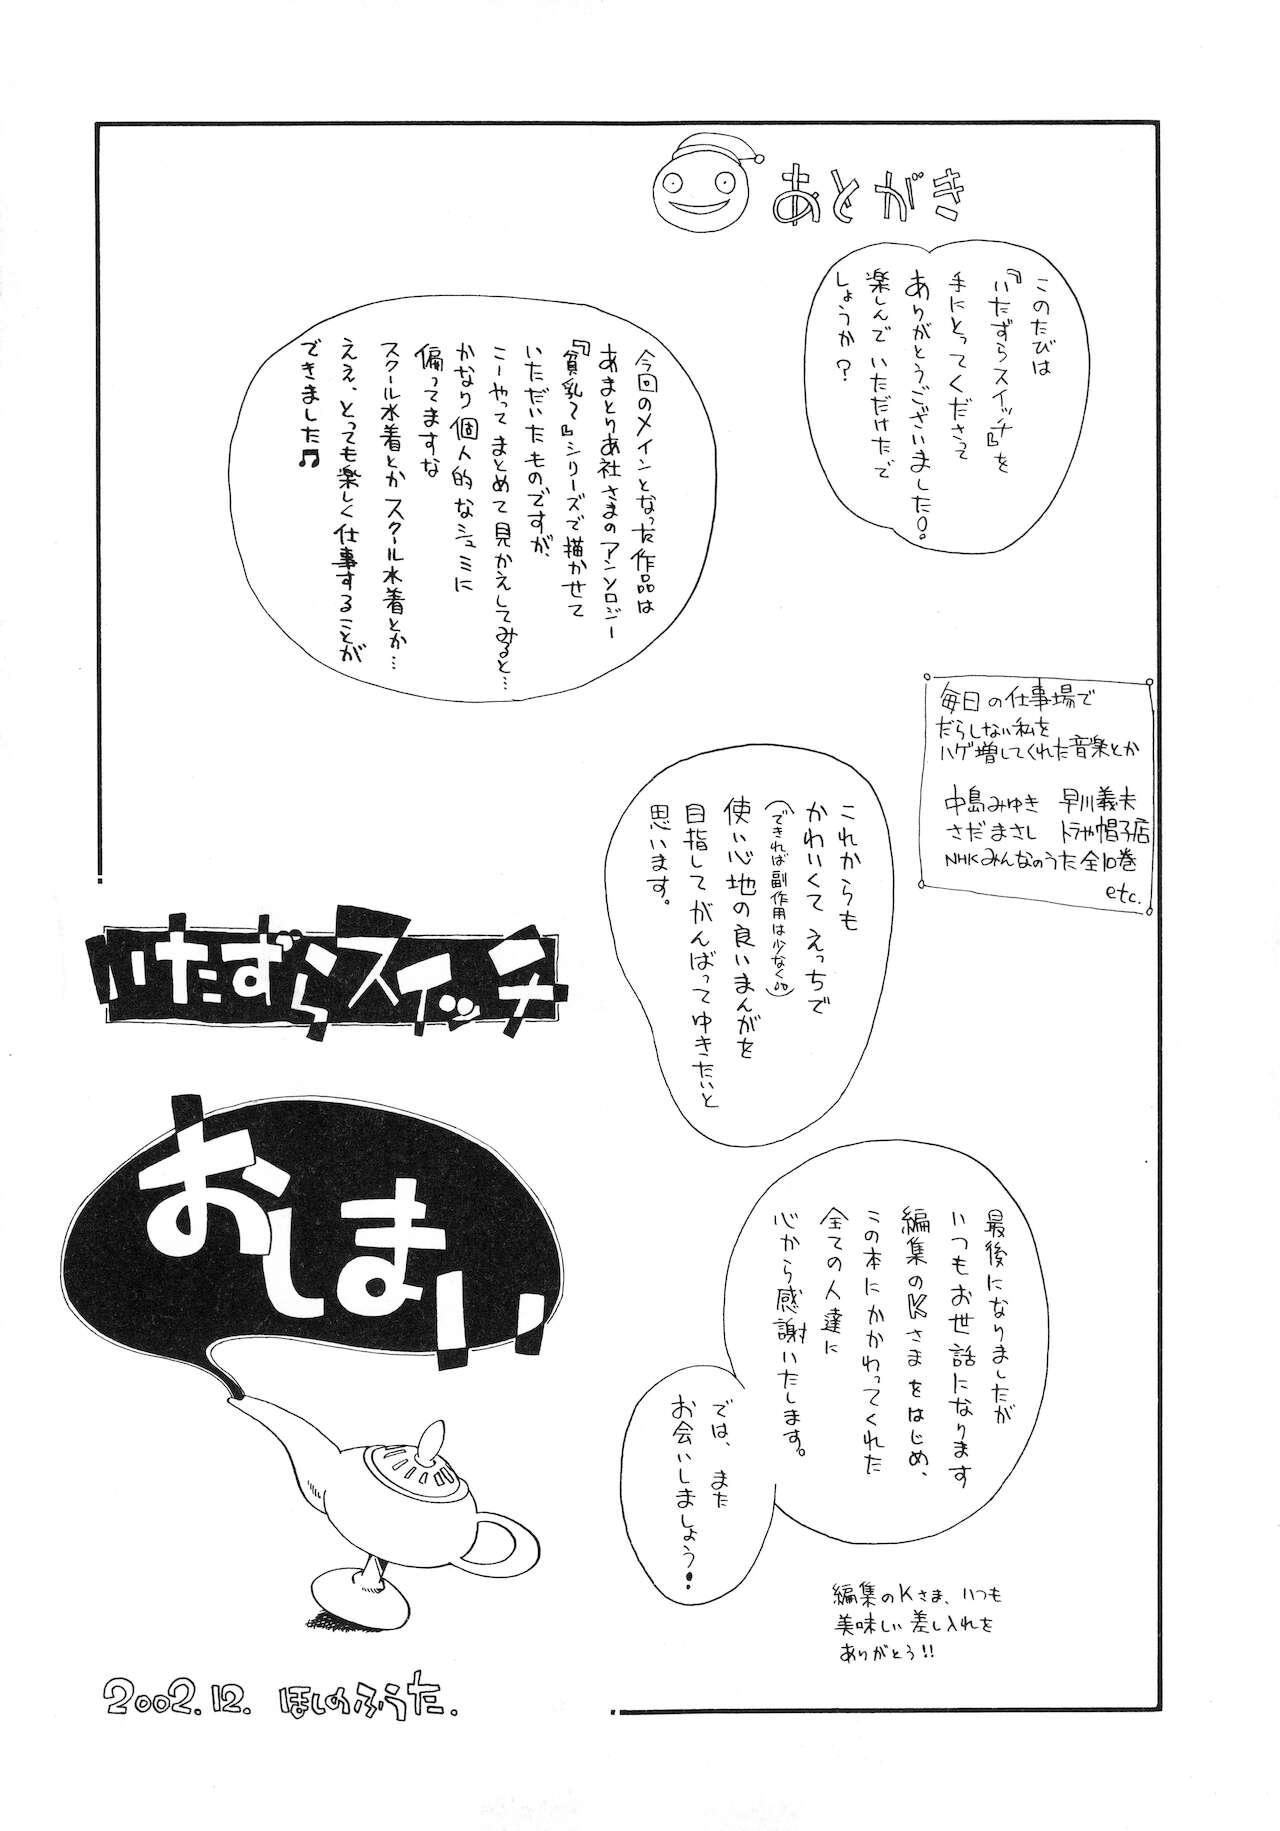 あとがき
このたびは
『いたずらスイッチ』を
手にとってくださって
ありがとうございました!
楽しんでいただけたで
しょうか?
今回のメインとなった作品は
あまとりあ社さまのアンソロジー
『貧乳て』シリーズで描かせて
いただいたものですが、
こーやってまとめて見かえしてみると…
かなり個人的なシュミに
偏ってますな
スクール水着とかスクール水着とか…
ええ、とっても楽しく仕事することが
できました♫
毎日の仕事場で
だらしない私を
ハゲ増してくれた音楽とか
中島みゆき 早川義夫
さだまさし トラや帽子店
NHKみんなのうた全10巻
etc.
これからも
かわいくてえっちで
(できれば副作用は少なく)
使い心地の良いまんがを
目指してがんばってゆきたいと
思います。
最後になりましたが
いつもお世話になります
編集のKさまをはじめ、
この本にかかわってくれた
全ての人達に
心から感謝いたします。
では、また
お会いしましょう!
編集のKさま、いつも
美味しい差し入れを
ありがとう!!
いたずらスイッチ
おしまい
2002.12. ほしのふうた.